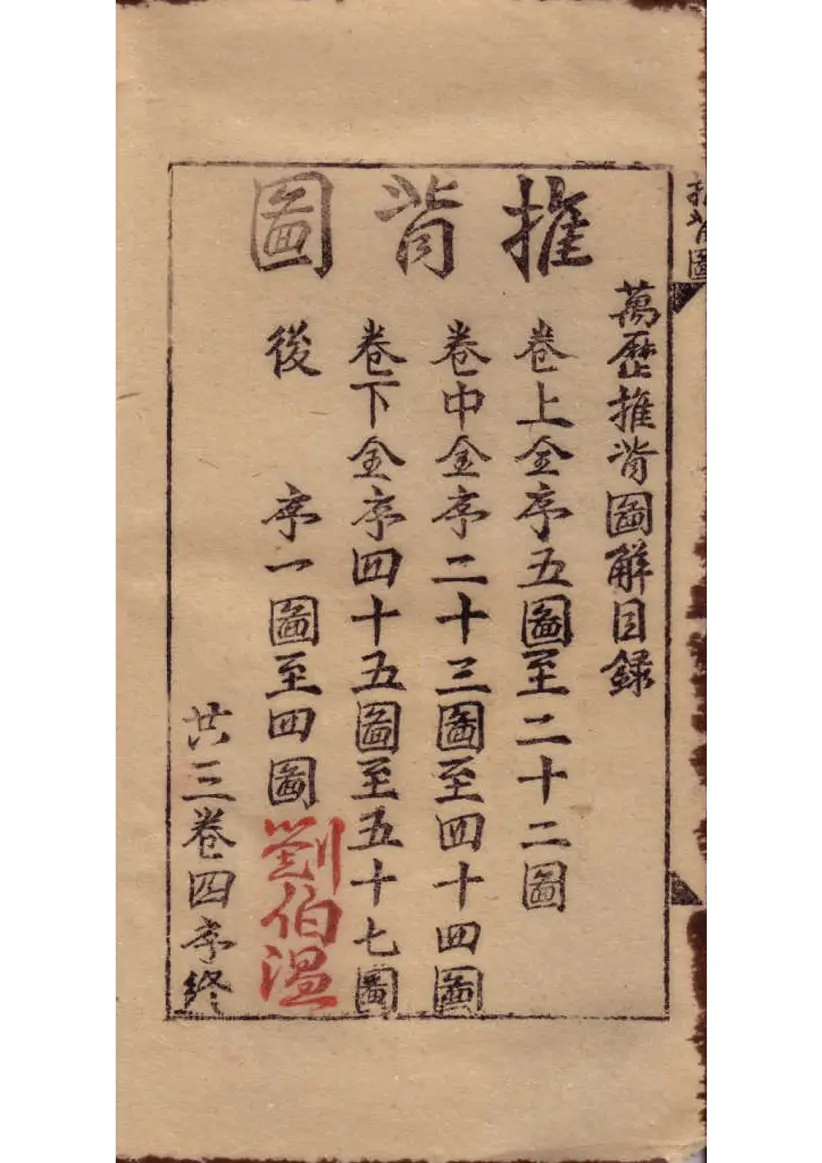 推背圖
萬歷推背圖解目錄
卷上金序五圖至二十二圖
卷中金序二十三圖至四十四圖
卷下金序四十五圖至五十七圖
後 序一圖至四圖 劉伯溫
共三卷四序終
推背圖